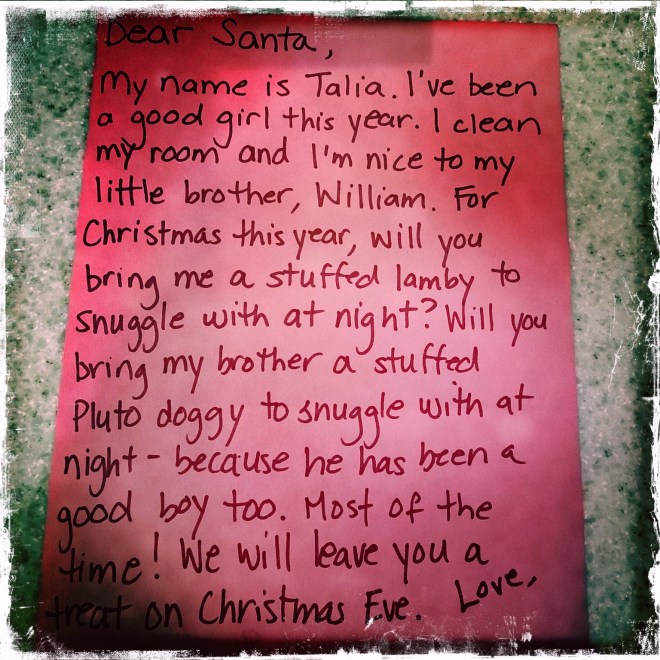 Dear Santa,
My name is Talia. I've been
a good girl this year. I clean
my room and I'm nice to my
little brother, William. For
Christmas this year, will you
bring me a stuffed lamby to
snuggle with at night? Will you
bring my brother a stuffed
Pluto doggy to snuggle with at
night - because he has been a
good boy too. Most of the
time! We will leave you a
treat on Christmas Eve. Love,